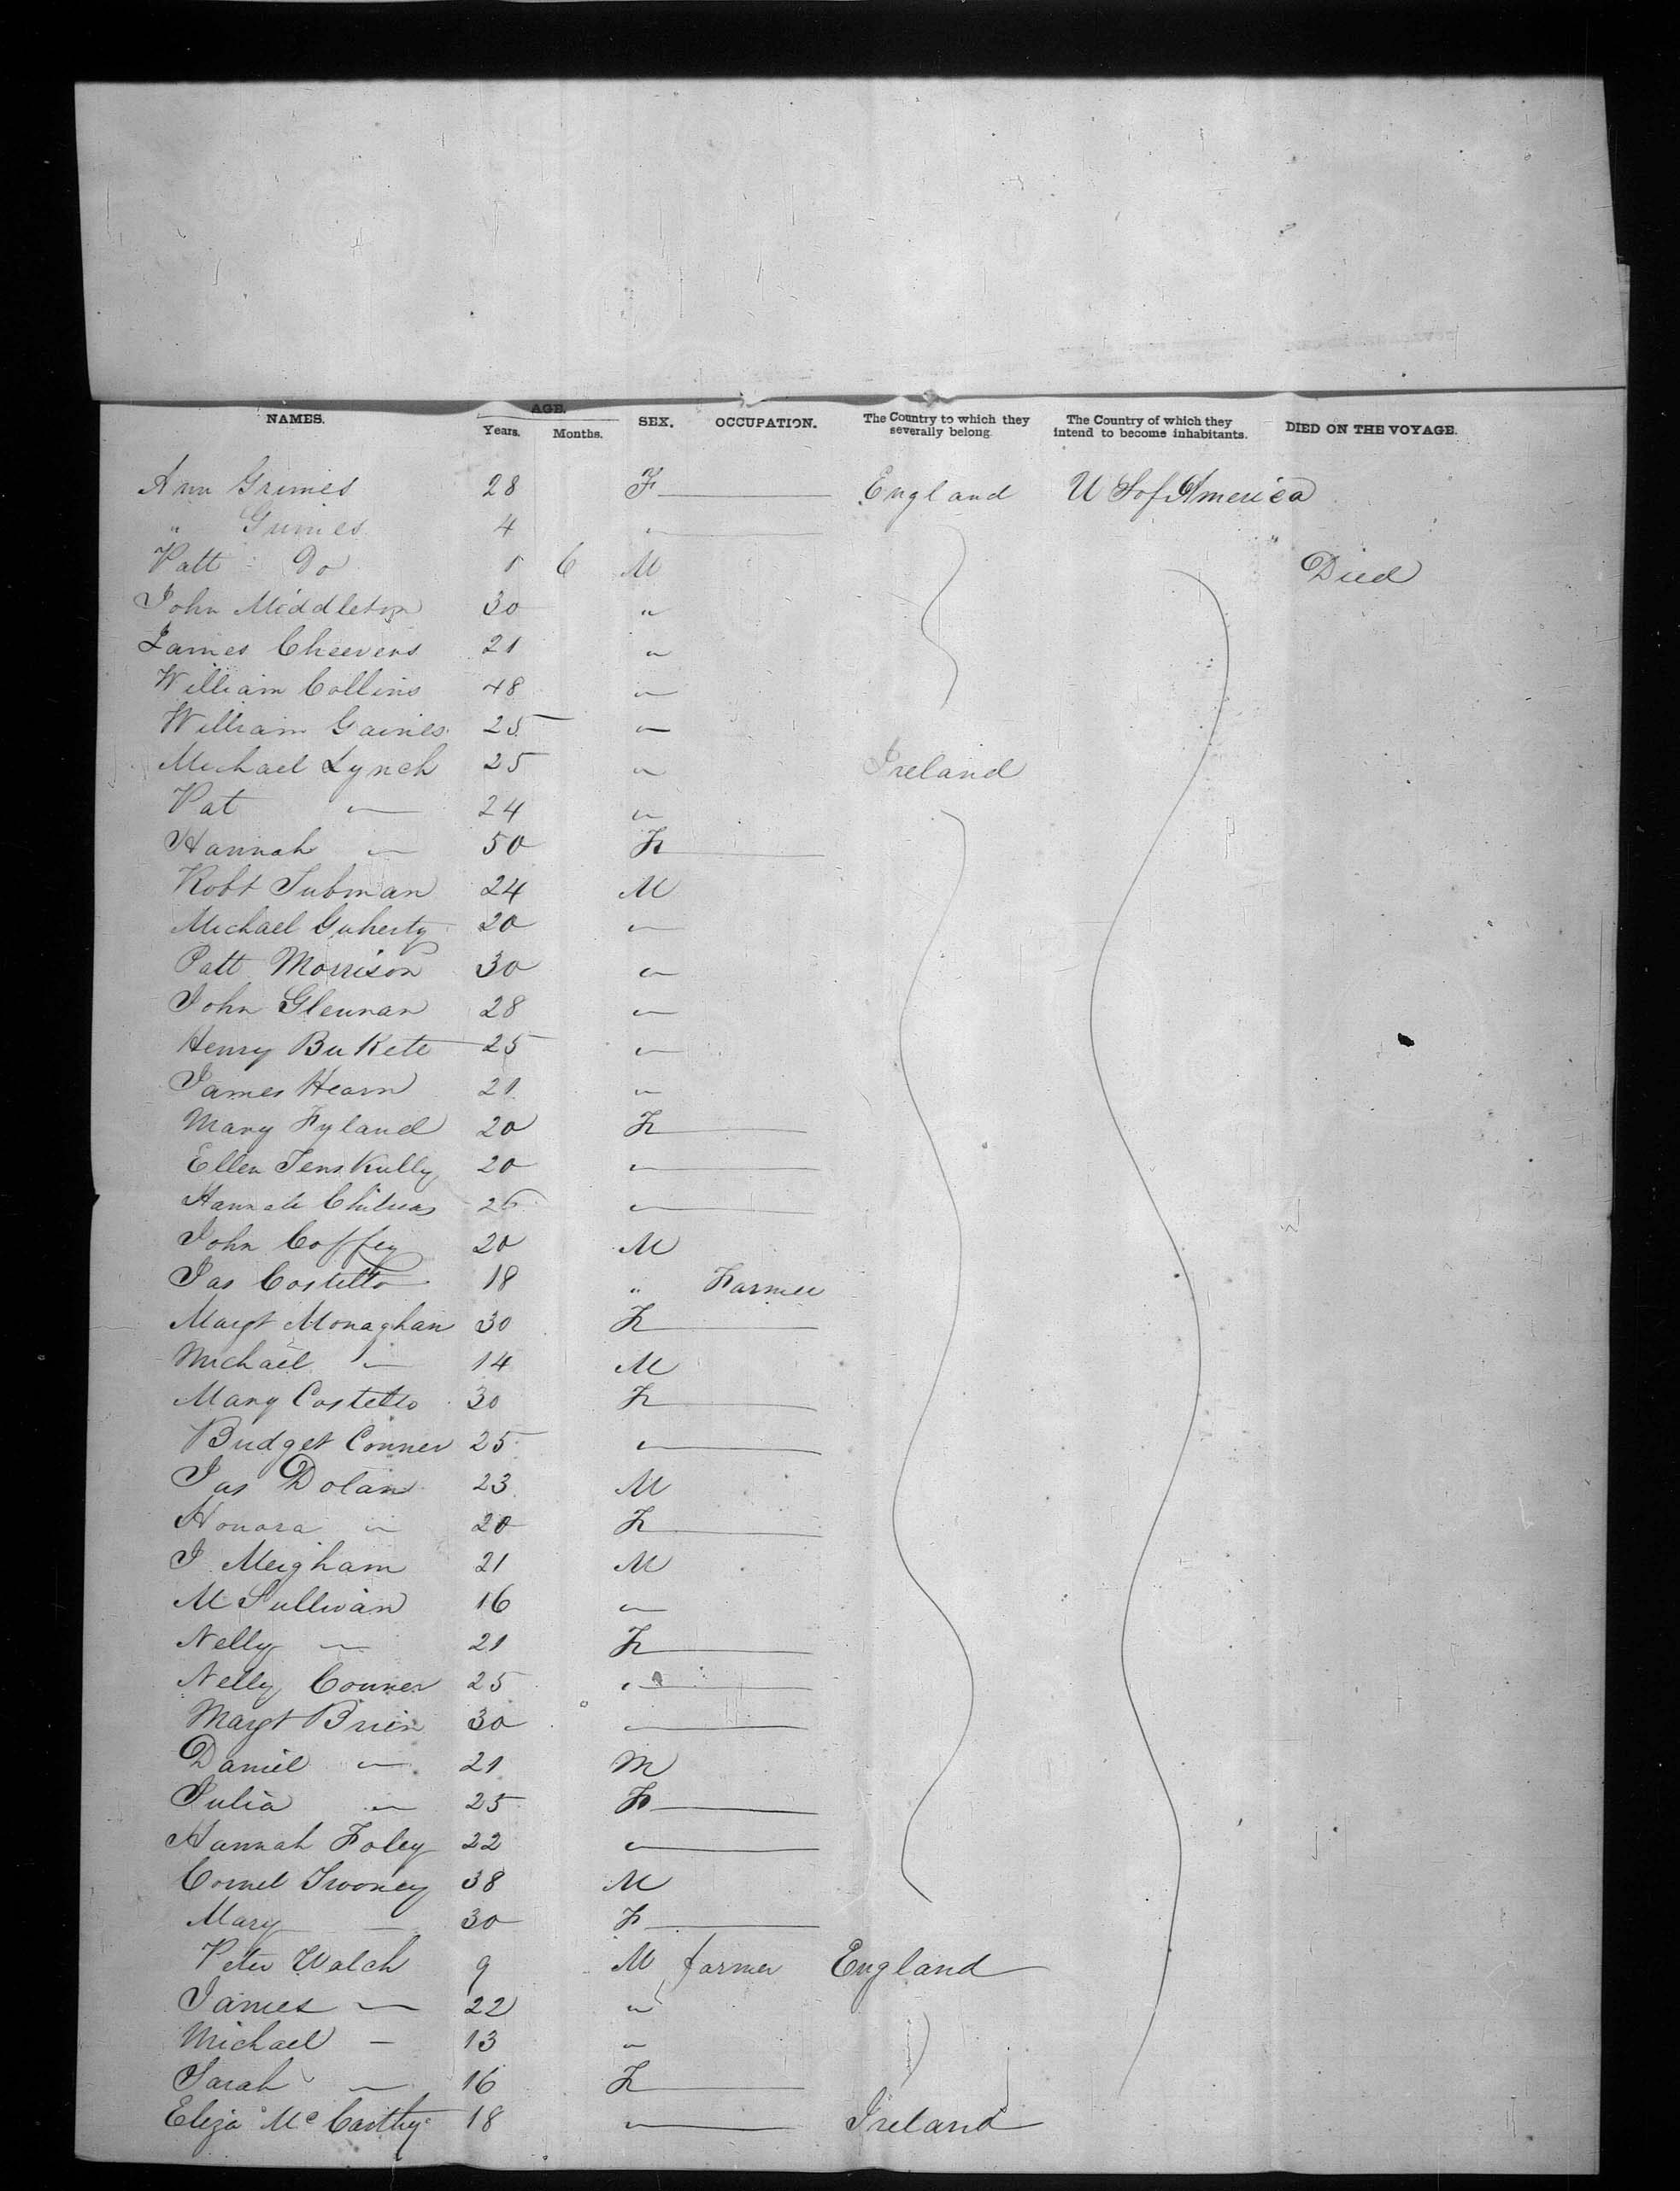 NAMES. AGE. Years. Months. SEX. OCCUPATION. The Country to which they severally belong. The Country of which they intend to become inhabitants. DIED ON THE VOYAGE.
Ann Grimes 28 F England U S of America
" Grimes 4 "
Patt Do 1 6 M Died
John Middleton 30 "
James Cheevers 21 "
William Collins 48 "
William Gaines 25 "
Michael Lynch 25 " Ireland
Pat " 24 "
Hannah " 50 F
Robt Tubman 24 M
Michael Guherty 20 "
Patt Morrison 30 "
John Glennan 28 "
Henry 25 "
James Hearn 21 "
Mary Fyland 20 F
Ellen 20 "
Hannah 26 "
John Coffey 20 M
Jas Costello 18 " Farmer
Margt Monaghan 30 F
Michael " 14 M
Mary Costello 30 F
Bridget Conner 25 "
Jas Dolan 23 M
Honora " 20 F
J Meigham 21 M
M Sullivan 16 "
Nelly " 21 F
Nelly Conner 25 "
Margt Brien 30 "
Daniel " 21 M
Julia " 25 F
Hannah Foley 22 "
Cornel Twoney 38 M
Mary — 30 F
Peter Walch 9 M farmer England
James " 22 "
Michael — 13 "
Sarah " 16 F
Eliza McCarthy 18 " Ireland